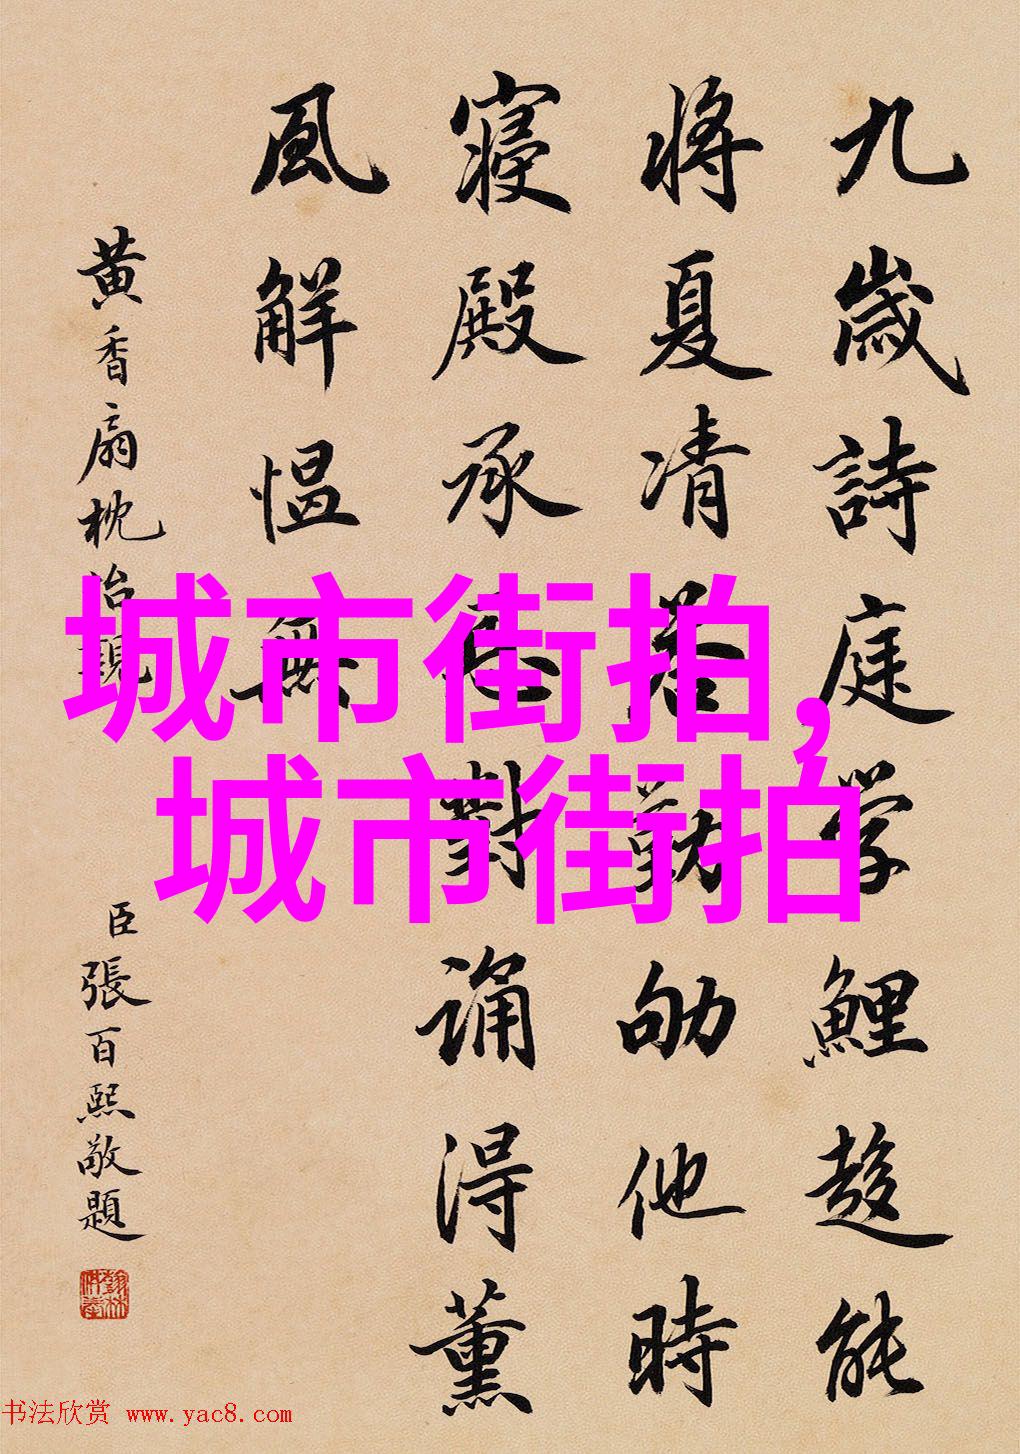 九歲詩庭学鯉趍能
将夏凊 勤劬他時
寝殿承 對誦得薰
風解愠無
黄香扇枕
臣張百熙敬題
城市街拍,
城市街拍
书法欣赏 www.yac8.com